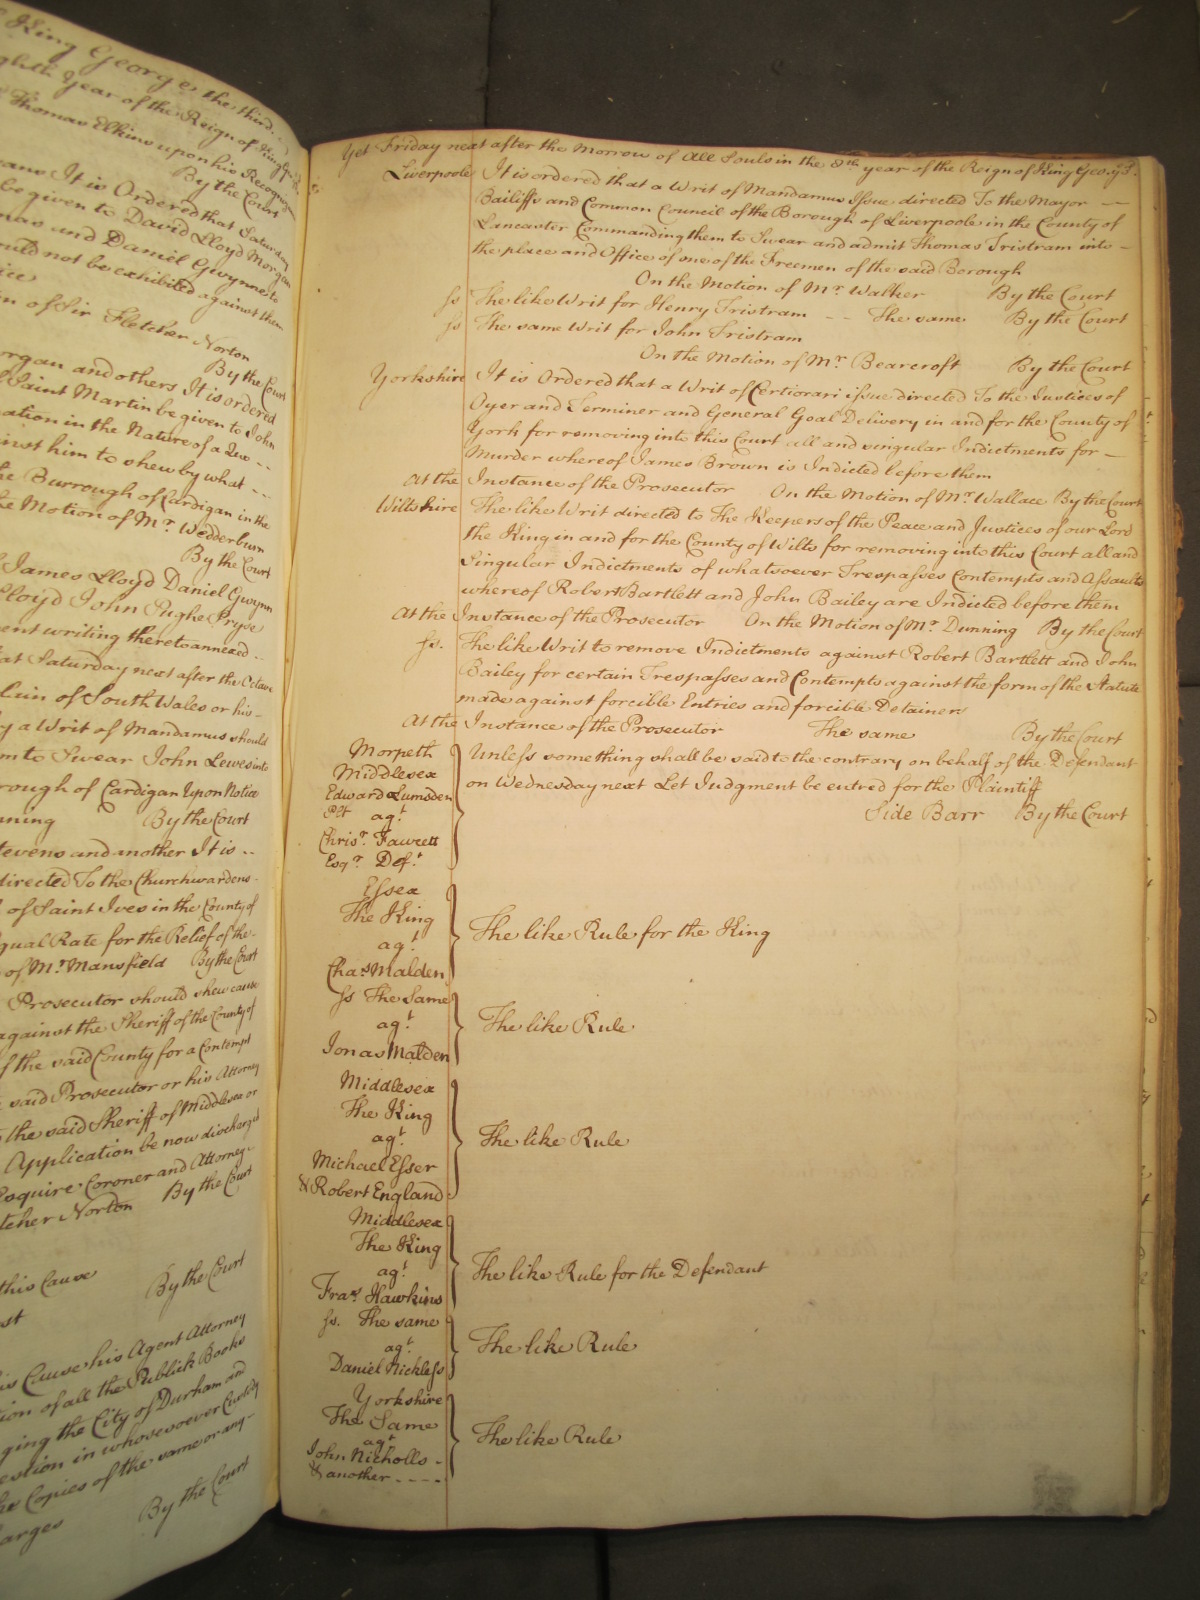 King George the third
Year of the Reign of King
Thomas Elkins upon his Recogni
By the Court
It is Ordered that Saturday
be given to David Lloyd Morgan
and Daniel Gwynne to
should not be exhibited against them
of Sir Fletcher Norton
By the Court
and others It is ordered
Saint Martin be given to John
in the Nature of a Quo --
him to shew by what --
Burrough of Cardigan in the
Motion of Mr. Wedderburn
By the Court
James Lloyd Daniel Gwynn
Lloyd John Pughe Pryse
writing thereto annexed --
Saturday next after the Octave
of South Wales or his -
a Writ of Mandamus should
to Swear John Lewes into
of Cardigan Upon Notice
By the Court
and another It is --
directed To the Churchwardens -
of Saint Ives in the County of
Equal Rate for the Relief of the -
of Mr. Mansfield By the Court
Prosecutor should shew cause
against the Sheriff of the County of
of the said County for a Contempt
said Prosecutor or his Attorney
the said Sheriff of Middlesex or
Application be now discharged
Esquire Coroner and Attorney
Norton By the Court
this Cause
By the Court
Cause his Agent Attorney
of all the Publick Books
the City of Durham and
in whosesoever Custody
Copies of the same or any -
By the Court
Yet Friday next after the Morrow of All Souls in the 8th. year of the Reign of King Geo. ye 3d.
Liverpoole It is ordered that a Writ of Mandamus Issue directed To the Mayor --
Bailiffs and Common Council of the Borough of Liverpoole in the County of
Lancaster Commanding them to Swear and admit Thomas Tristram into -
the place and Office of one of the Freemen of the said Borough
On the Motion of Mr. Walker By the Court
ss The like Writ for Henry Tristram -- The same By the Court
ss The same Writ for John Tristram
On the Motion of Mr. Bearcroft By the Court
Yorkshire It is Ordered that a Writ of Certiorari issue directed To the Justices of
Oyer and Terminer and General Goal Delivery in and for the County of
York for removing into this Court all and singular Indictments for -
Murder whereof James Brown is Indicted before them
At the Instance of the Prosecutor On the Motion of Mr. Wallace By the Court
Wiltshire The like Writ directed to The Keepers of the Peace and Justices of our Lord
the King in and for the County of Wilts for removing into this Court all and
Singular Indictments of whatsoever Trespasses Contempts and Assaults
whereof Robert Bartlett and John Bailey are Indicted before them
At the Instance of the Prosecutor On the Motion of Mr. Dunning By the Court
ss. The like Writ to remove Indictments against Robert Bartlett and John
Bailey for certain Trespasses and Contempts against the form of the Statute
made against forcible Entries and forcible Detainers
At the Instance of the Prosecutor The same By the Court
Morpeth
Middlesex
Edward Lumsden
Plt agt.
Christr. Fawcett
Esqr. Deft.
Unless something shall be said to the contrary on behalf of the Defendant
on Wednesday next Let Judgment be entred for the Plaintiff
Side Barr By the Court
Essex
The King
agt.
Chas. Malden
The like Rule for the King
ss The Same
agt.
Jonas Malden
The like Rule
Middlesex
The King
agt.
Michael Esser
& Robert England
The like Rule
Middlesex
The King
agt.
Fras. Hawkins
The like Rule for the Defendant
ss. The same
agt.
Daniel Nickless
The like Rule
Yorkshire
The Same
agt.
John Nicholls -
& another ----
The like Rule